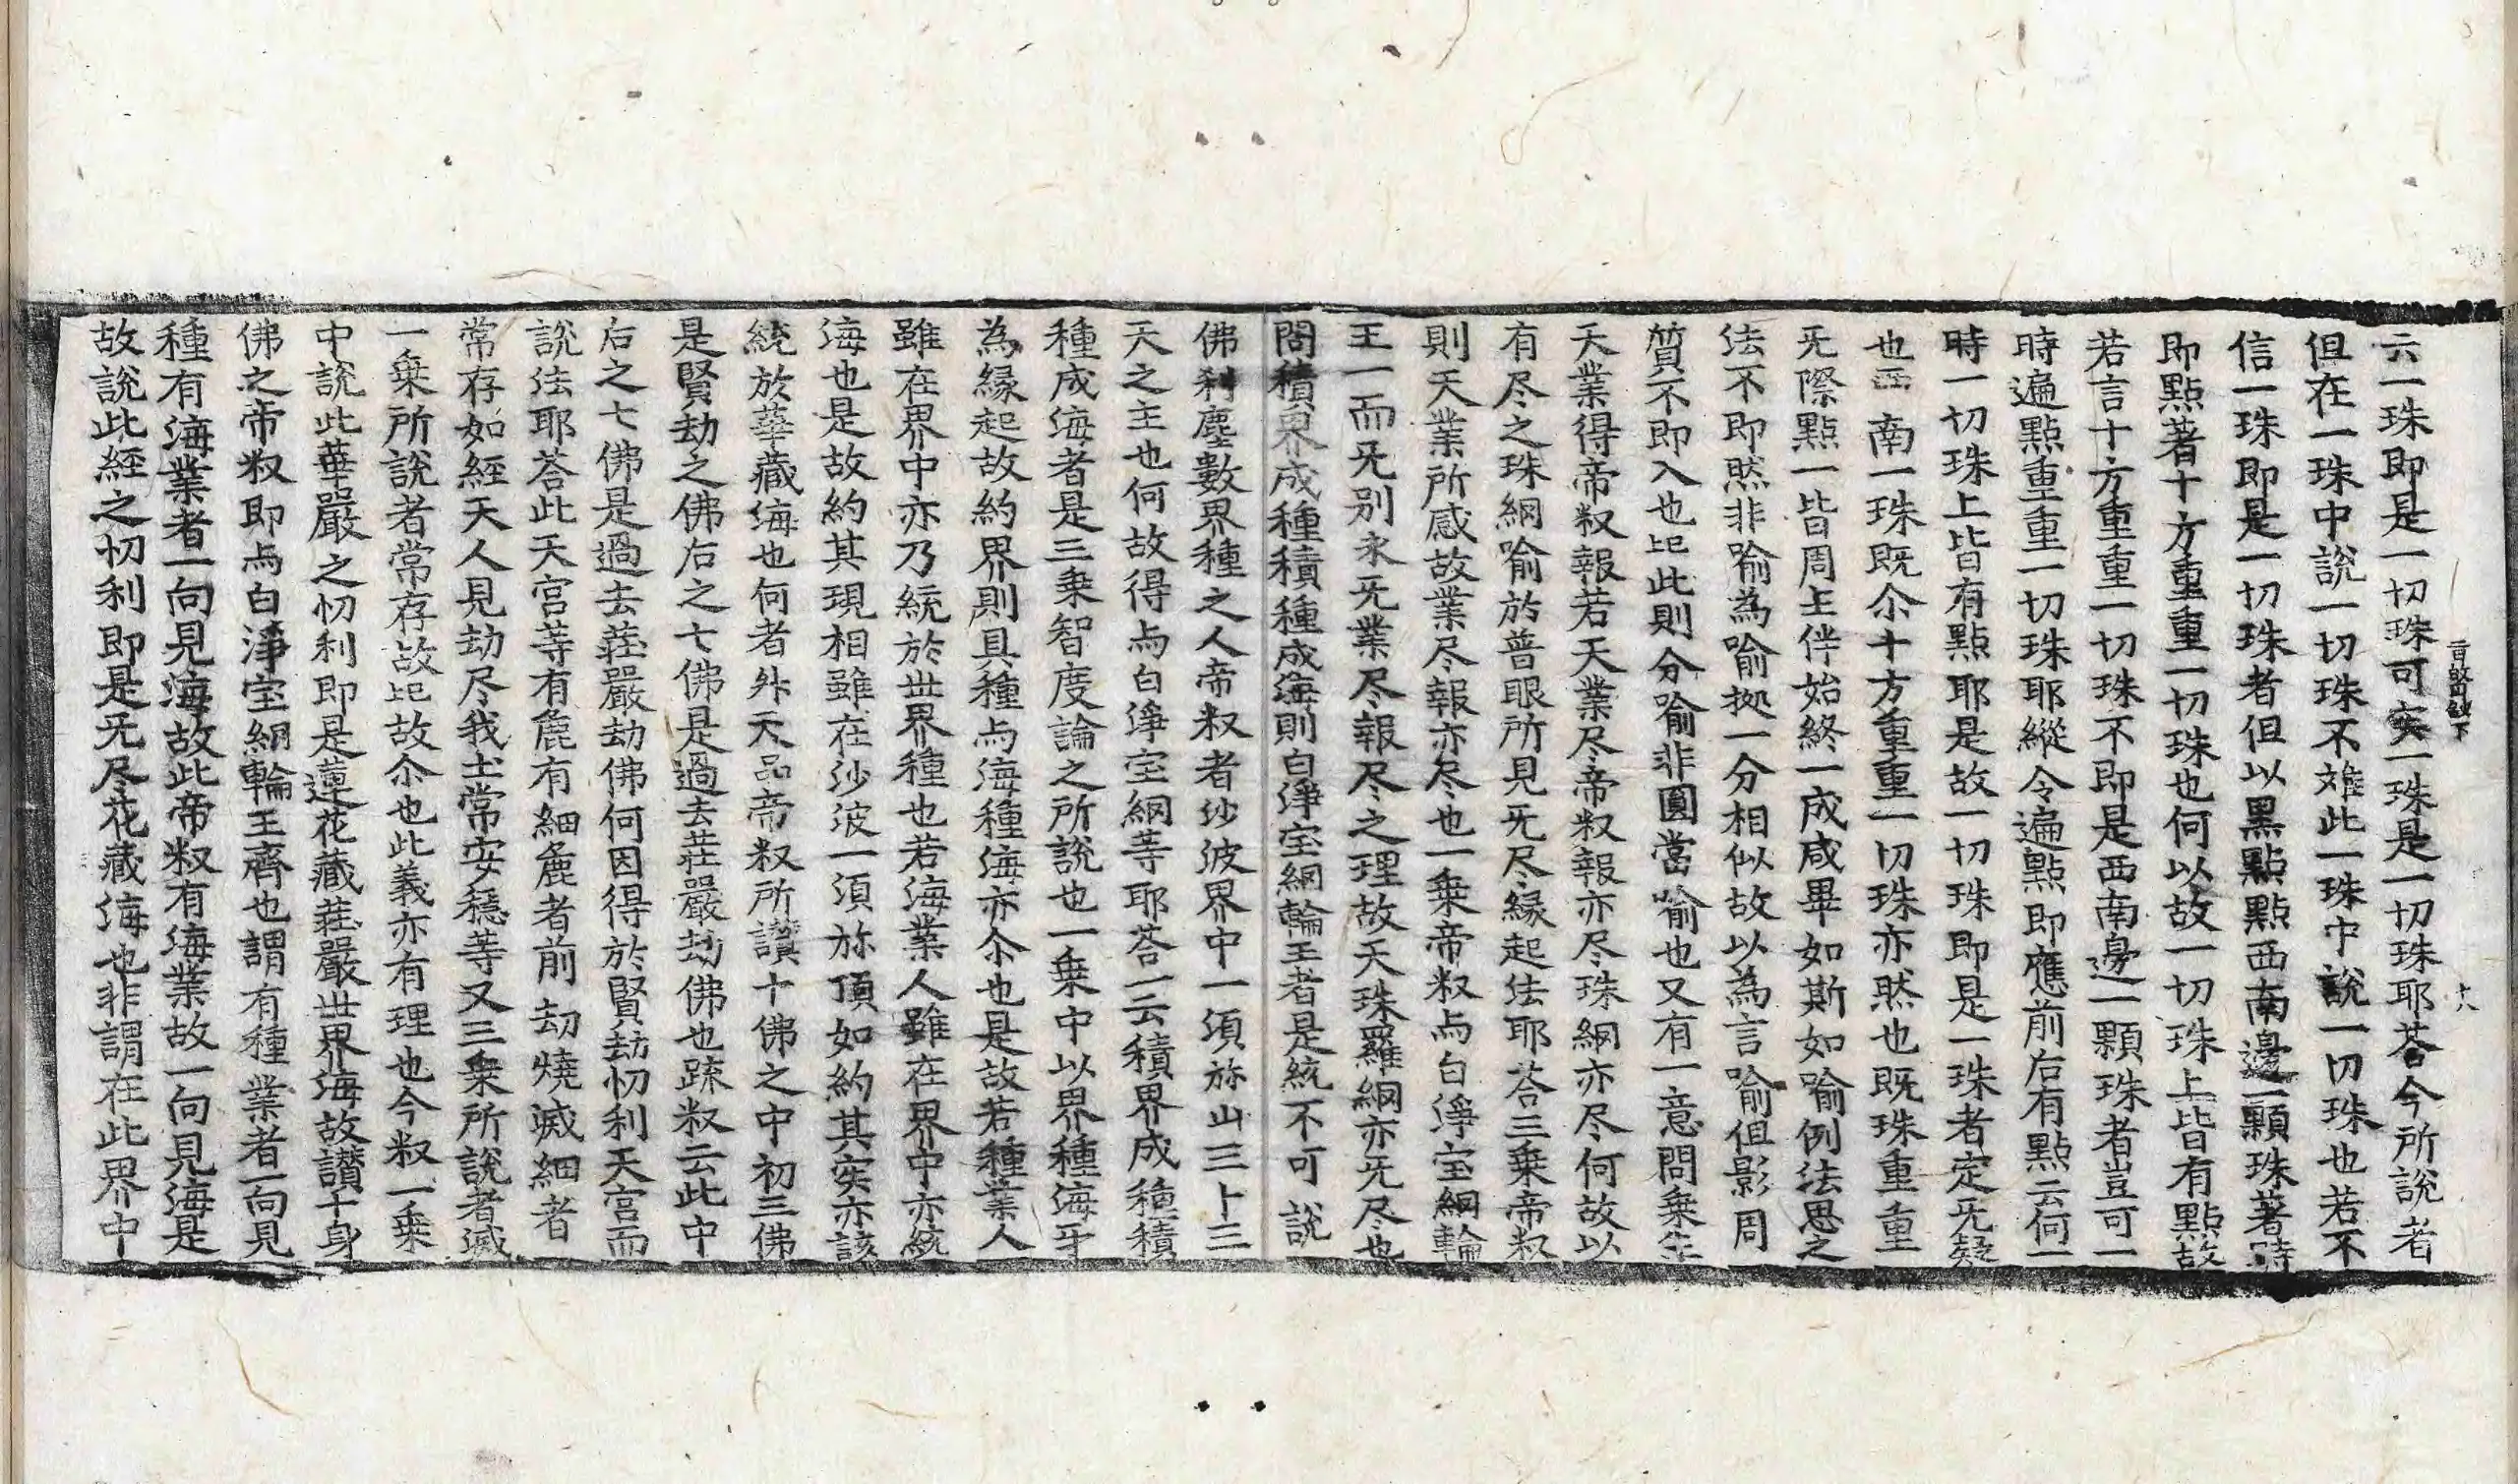 旨歸鈔下
十八
云一珠即是一切珠可矣一珠是一切珠耶荅今所說者
但在一珠中說一切珠不难此一珠中說一切珠也若不
信一珠即是一切珠者但以黑點點西南邊一顆珠著時
即點著十方重重一切珠也何以故一切珠上皆有點故
若言十方重重一切珠不即是西南邊一顆珠者豈可一
時遍點重重一切珠耶縱令遍點即應前后有點云何一
時一切珠上皆有點耶是故一切珠即是一珠者定无疑
也西南一珠既尒十方重重一切珠亦然也既珠重重
无際點一皆周主伴始終一成咸畢如斯如喻例法思之
法不即然非喻為喻拠一分相似故以為言喻但影周
質不即入也此則分喻非圓當喻也又有一意問乗
天業得帝叔報若天業尽帝叔報亦尽珠網亦尽何故以
有尽之珠網喻於普眼所見无尽緣起法耶荅三乗帝叔
則天業所感故業尽報亦尽也一乗帝叔与白淨宝網輪
王一而无别永无業尽報尽之理故天珠羅網亦无尽也
問積界成種積種成海則白淨宝網輪王者是統不可說
佛刹塵數界種之人帝叔者沙波界中一須弥山三十三
天之主也何故得与白淨宝網等耶荅一云積界成種積
種成海者是三乗智度論之所說也一乗中以界種海乎
為緣起故約界則具種与海種海亦尒也是故若種業人
雖在界中亦乃統於世界種也若海業人雖在界中亦統
海也是故約其現相雖在沙波一須弥頂如約其实亦該
統於華藏海也何者外天品帝叔所讚十佛之中初三佛
是賢劫之佛后之七佛是過去莊嚴劫佛也疏叔云此中
后之七佛是過去莊嚴劫佛何因得於賢劫忉利天宮而
說法耶荅此天宮等有麁有細麁者前劫燒滅細者
常存如經天人見劫尽我土常安穩等又三乗所說者滅
一乗所說者常存故故尒也此義亦有理也今叔一乗
中說此華嚴之忉利即是蓮花藏莊嚴世界海故讚十身
佛之帝叔即与白淨宝網輪王齊也謂有種業者一向見
種有海業者一向見海故此帝叔有海業故一向見海是
故說此経之忉利即是无尽花藏海也非謂在此界中